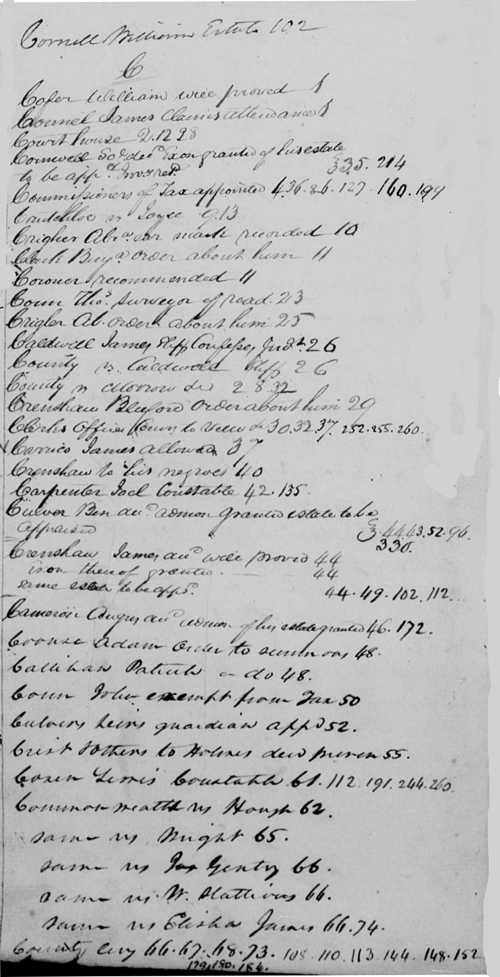 Cornell William Estate 102
C
Cofer William will proved 1
Connel James Claims attendance 1
Court house 2.12 28
Cornwell decd. granted of his estate
to be appd. 335. 214
Commissioners of Tax appointed 4.36.86.127.160.199
vs Joyce 9.13
Crigler Abr. ear mark recorded 10
order about him 11
Coroner recommended 11
Conn Thos. Surveyor of road 23
Crigler Ab. order about him 25
Caldwell James Judt. 26
County vs. Caldwell 26
County vs Morrow 28.32
Crenshaw Bluford order about him 29
Clerks Office to view 30.32.37. 252.255.260.
Carrico James allowed 37
Crenshaw to his negroes 40
Carpenter Joel Constable 42.135.
Culver Ben admon granted estate to be
appraised 44.43.52.96.
330.
Crenshaw James will proved 44
thereof granted 44
same to be appd. 44.49.102.112
Cameron Angus admon. of his estate granted 46.172.
Coonse Adam order to summons 48.
Callihan Patrick do 48.
Conn John exempt from Tax 50
Culvers heirs guardian appd 52.
Crist Others to Holmes deed proven 55.
Coxen Lewis Constable 61.112.191.244.260.
Commonwealth vs Hough 62.
same vs Wright 65.
same vs Jas Gentry 66.
same vs W. 66.
same vs Elisha James 66.74.
County levy 66.67.68.73. 108.110.113.144.148.182
179.180.184.